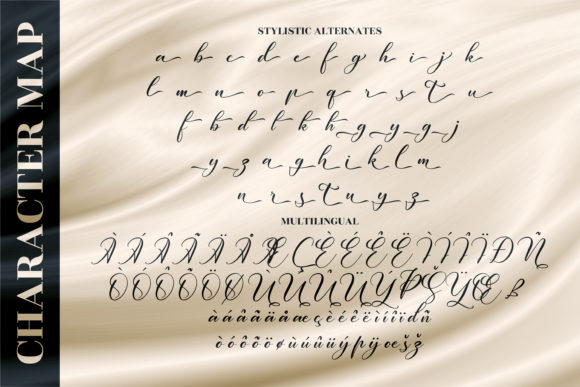 CHARACTER MAP
STYLISTIC ALTERNATES
a b c d e f g h i j k
l m n o p q r s t u
f b d k h g y g j
y z a g h i k l m
n r s t u y z
MULTILINGUAL
À Á Â Ã Ä Å Æ Ç È É Ê Ë Ì Í Î Ï Ð Ñ
Ò Ó Ô Õ Ö Ø Ù Ú Û Ü Ý Þ Š Ÿ Œ Ł
à á â ã ä å æ ç è é ê ë ì í î ï d ñ
ò ó ô õ ö ø ù ú û ü ý þ ÿ œ š ž